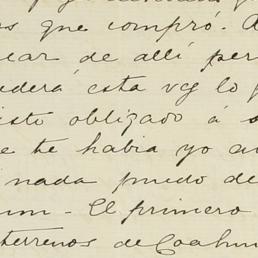 s que compró. A
car de allí per
derá esta vez lo p
isto oblizado á s
e te habia yo au
nada puedo de
um - El primero
terrenos de Coahu